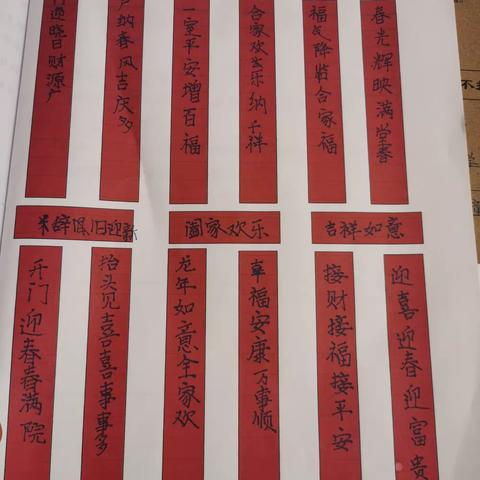 门迎晓日财源广
户纳春风吉庆多
一室平安增百福
合家欢乐纳千祥
福气降临合家福
春光辉映满堂春
辞旧迎新
阖家欢乐
吉祥如意
开门迎春春满院
抬头见喜喜事事多
龙年如意全家欢
幸福安康万事顺
接财接福接平安
迎喜迎春迎富贵